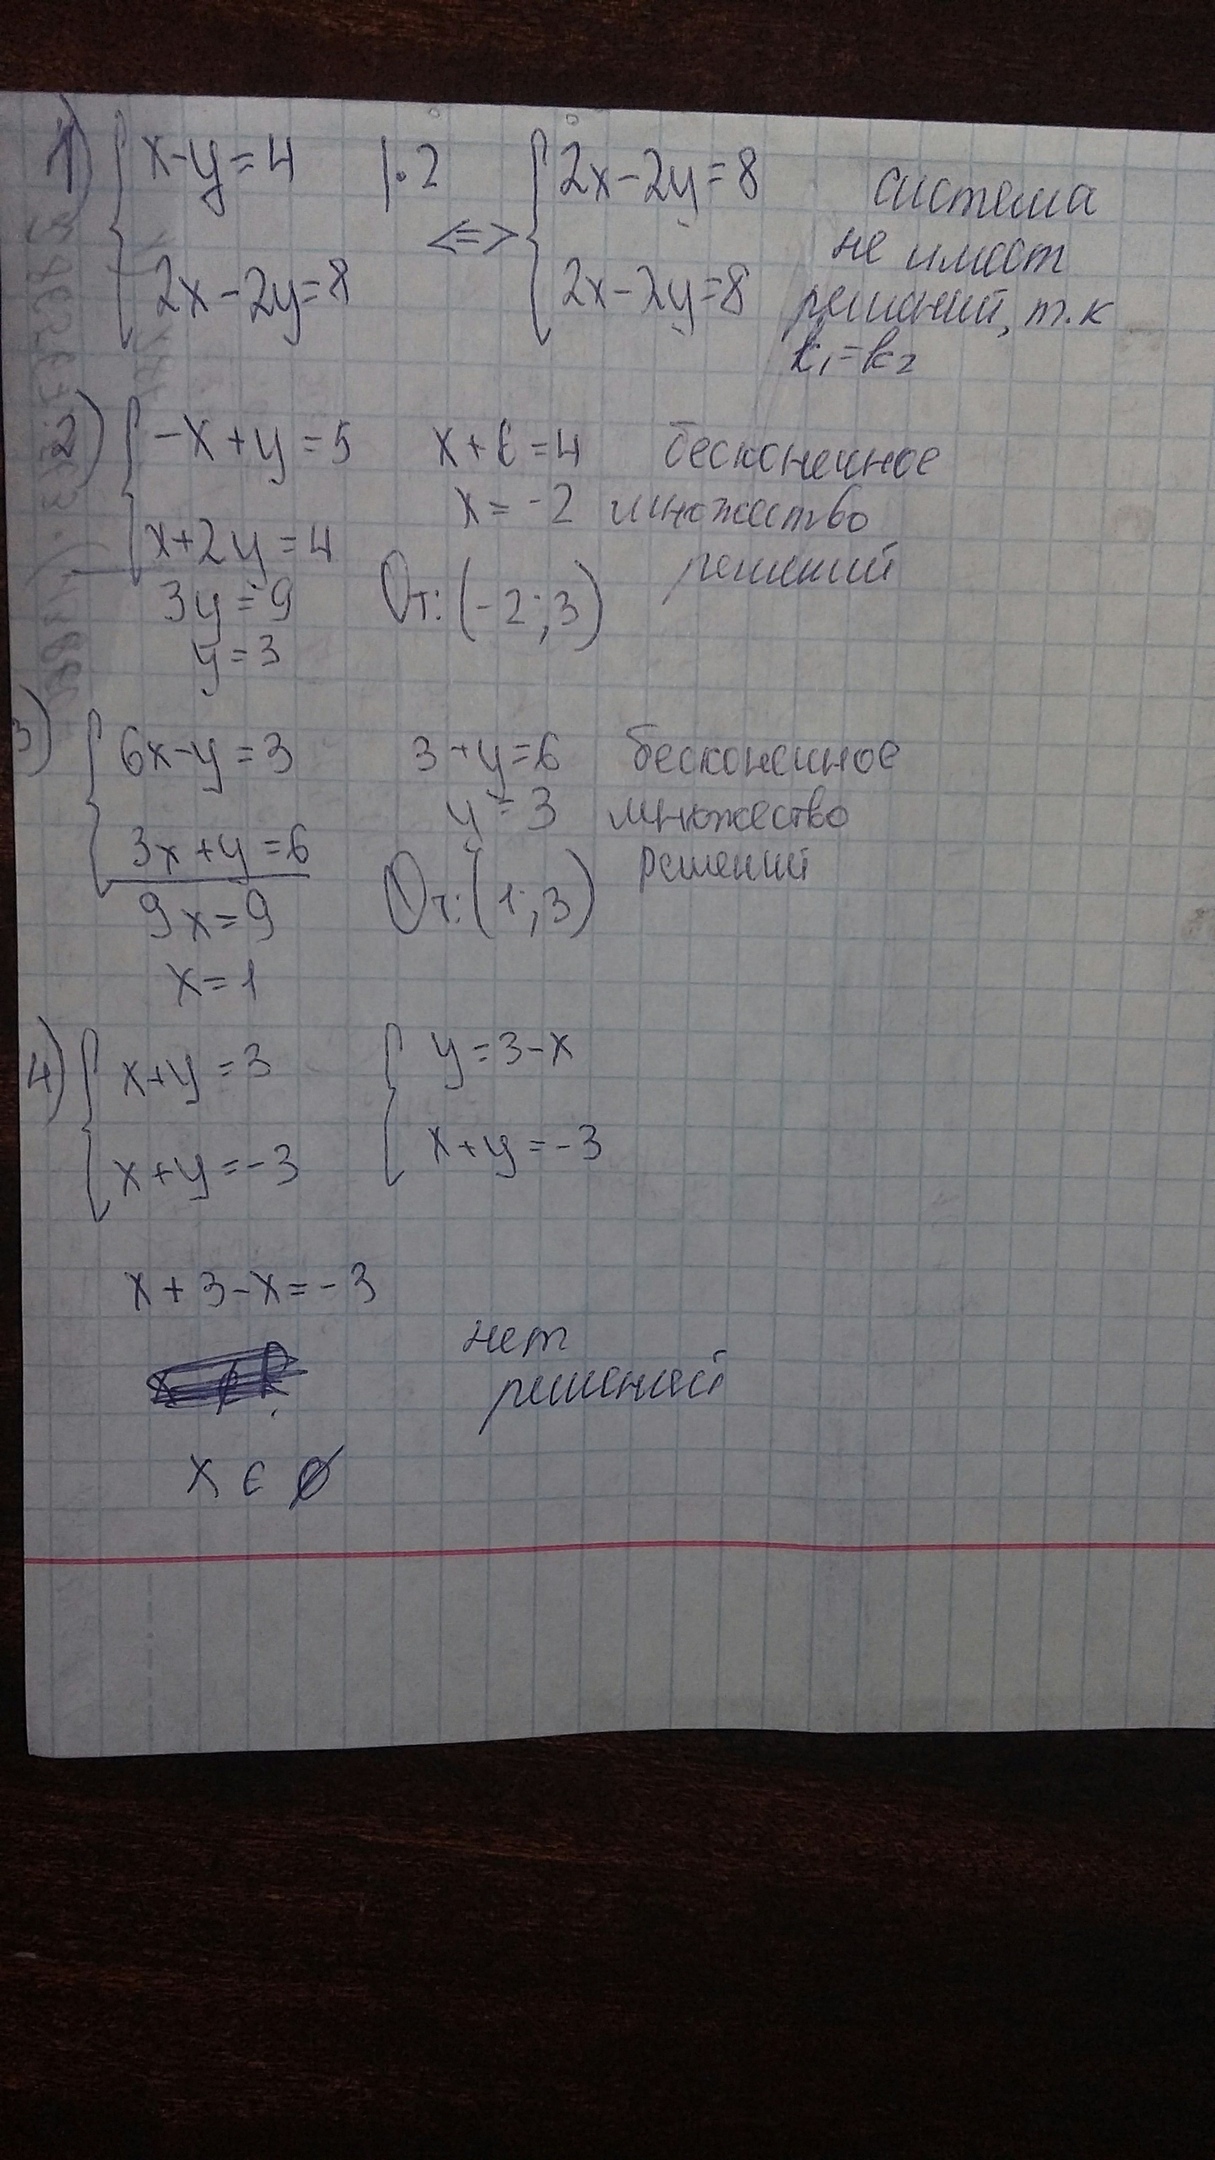 1) { x-y=4 |·2 <=> { 2x-2y=8
2x-2y=8 2x-2y=8
система
не имеет
решений, т.к
k₁=k₂
2) { -x+y=5 x+6=4
x+2y=4 x=-2
3y=9 От: (-2;3)
y=3
бесконечное
множество
решений
3) { 6x-y=3 3+y=6
3x+y=6 y=3
9x=9 От: (1;3)
x=1
бесконечное
множество
решений
4) { x+y=3 { y=3-x
x+y=-3 x+y=-3
x+3-x=-3
нет
решений
x ∈ ∅